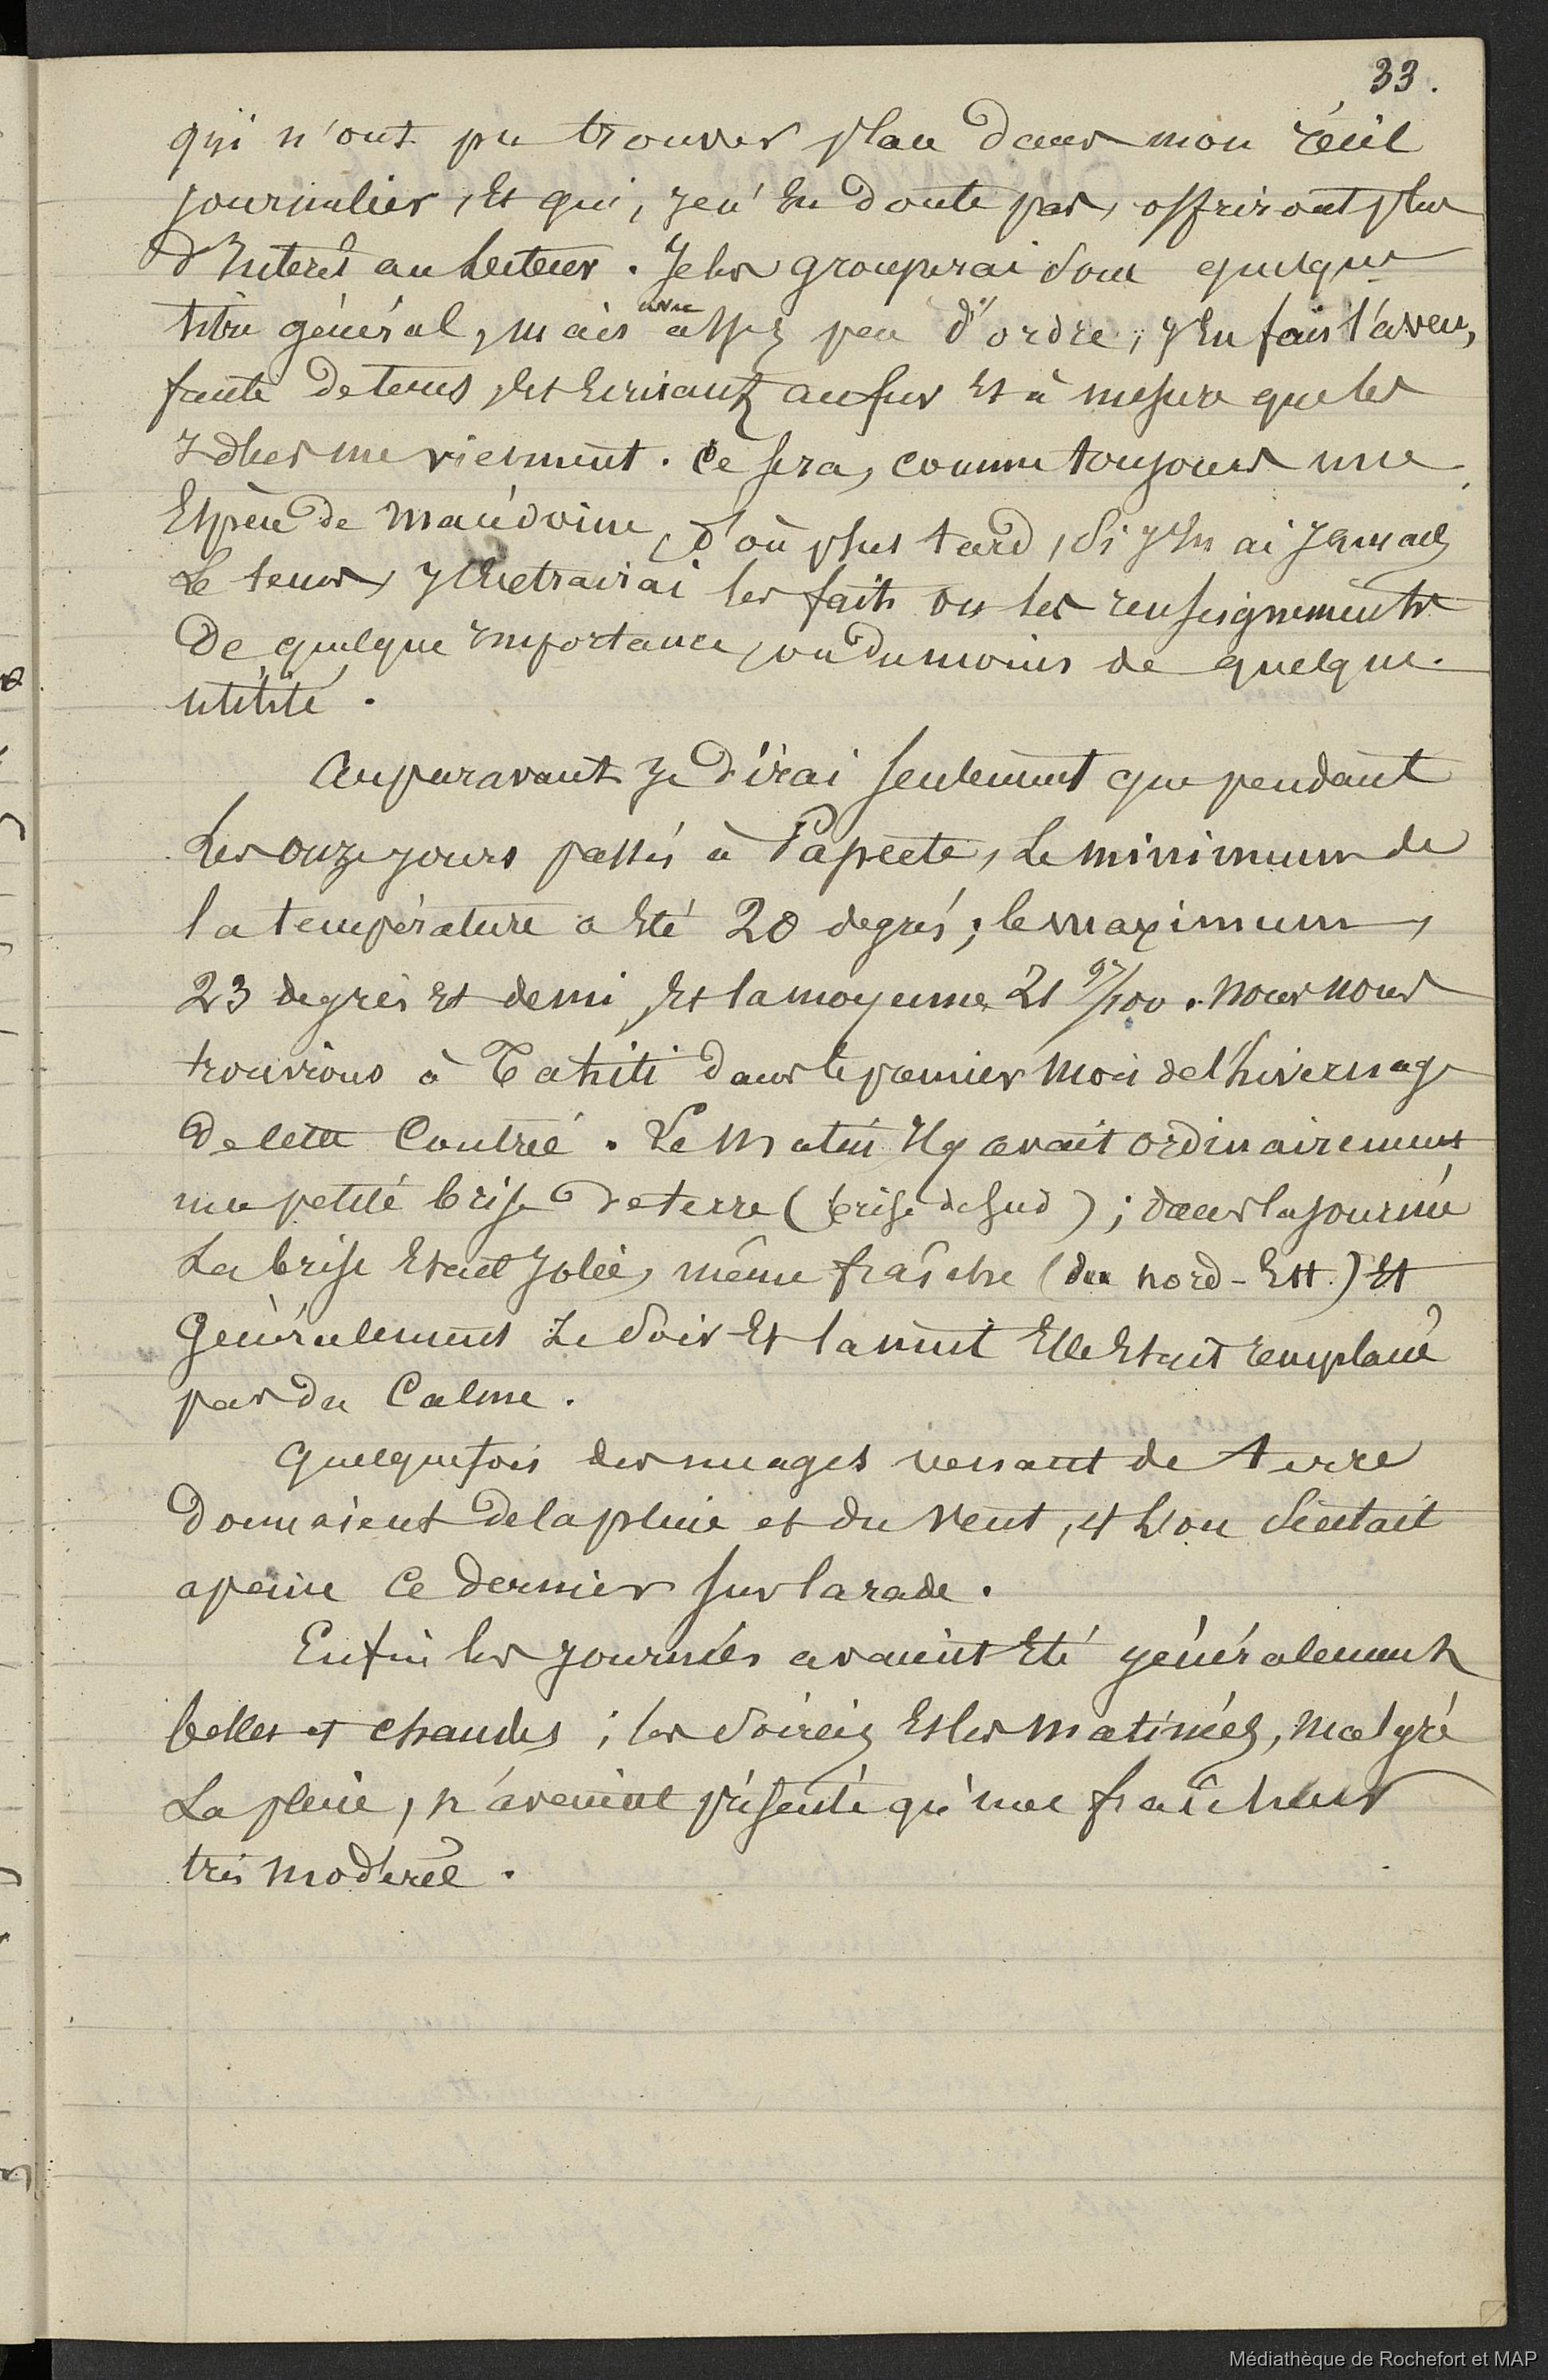 33.
qui n'ont pu trouver place dans mon récit
journalier, et qui, je n'en doute pas, offriront plus
d'interêt au lecteur. Je les grouperai sous quelque
titre général, mais avec assez peu d'ordre, j'en fais l'aveu,
faute de tems, les écrivant au fur et à mesure que les
idées me viennent. Ce sera, comme toujours une
Espèce de macédoine, d'où plus tard, si j'en ai jamais
le tems, j'extrairai les faits ou les renseignements
de quelque importance, ou du moins de quelque
utilité.
Auparavant je dirai seulement que pendant
les onze jours passés à Papeete, le minimum de
la température a été 20 degrés; le maximum,
23 degrés et demi, et la moyenne 21 97/100. Nous nous
trouvions à Tahiti dans le premier mois de l'hivernage
de cette contrée. Le matin il y avait ordinairement
une petite brise de terre (brise de sud); dans la journée
la brise était jolie, même fraîche (du nord-Est.) et
généralement le soir et la nuit elle était remplacée
par du calme.
Quelquefois des nuages venant de terre
donnaient de la pluie et du vent, et l'on sentait
a peine ce dernier sur la rade.
Enfin les journées avaient été généralement
belles et chaudes; les soirées et les matinées, malgré
la pluie, n'avaient présenté qu'une fraîcheur
très modérée.
Médiathèque de Rochefort et MAP